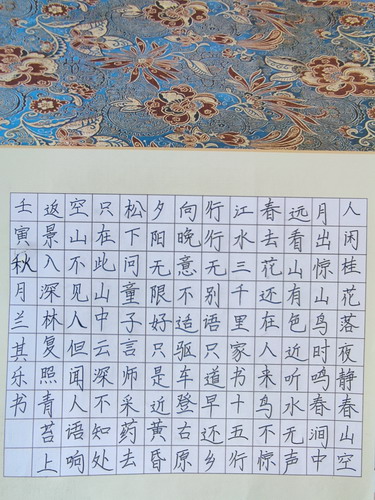 人闲桂花落夜静春山空
月出惊山鸟时鸣春涧中
远看山有色近听水无声
春去花还在人来鸟不惊
江水三千里家书十五行
行行无别语只道早还乡
向晚意不适驱车登古原
夕阳无限好只是近黄昏
松下问童子言师采药去
只在此山中云深不知处
空山不见人但闻人语响
返景入深林复照青苔上
壬寅秋月兰其乐书